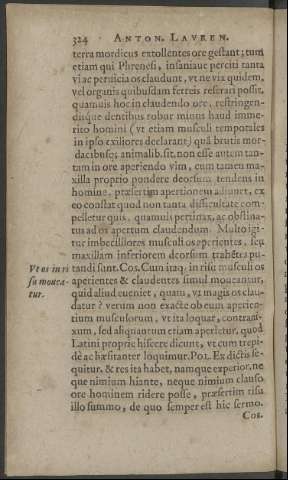 324 ANTON. LAVREN.
terra mordicus extollentes ore gestant; tum
etiam qui Phrenesi, insaniave perciti tanta
vi ac pervicia os claudunt, vt ne vix quidem,
vel organis quibusdam ferreis reserari possit,
quamuis hoc in claudendo ore, restringen-
disque dentibus robur minus haud imme-
rito homini (vt etiam musculi temporales
in ipso exiliores declarant) quā brutis mor-
dacibusq; animalib. sit. non esse autem tan-
tam in ore aperiendo vim, cum tamen ma-
xilla proprio pondere deorsum tendens in
homine, præsertim apertionem adiuuet, ex
eo constat quod non tanta difficultate com-
pelletur quis, quamuis pertinax, ac obstina-
tus ad os apertum claudendum. Multo igi-
tur imbecilliores musculi os aperientes, seu
maxillam inferiorem deorsum trahētes pu-
Vt os in ri tandi sunt. Cos. Cum itaq; in risu musculi os
su mouea- aperientes & claudentes simul moueantur,
tur. quid aliud euenier, quam, vt magis os clau-
datur? verum non exacte ob eum aperien-
tium musculorum, vt ita loquar, contrani-
xum, sed aliquantum etiam aperietur, quod
Latini propriè hiscere dicunt, vt cum trepi-
dè ac hæsitanter loquimur. Pol. Ex dictis se-
quitur, & res ita habet, namque experior, ne
que nimium hiante, neque nimium clauso
ore hominem ridere posse, præsertim risu
illo summo, de quo semper est hic sermo.
Cos.